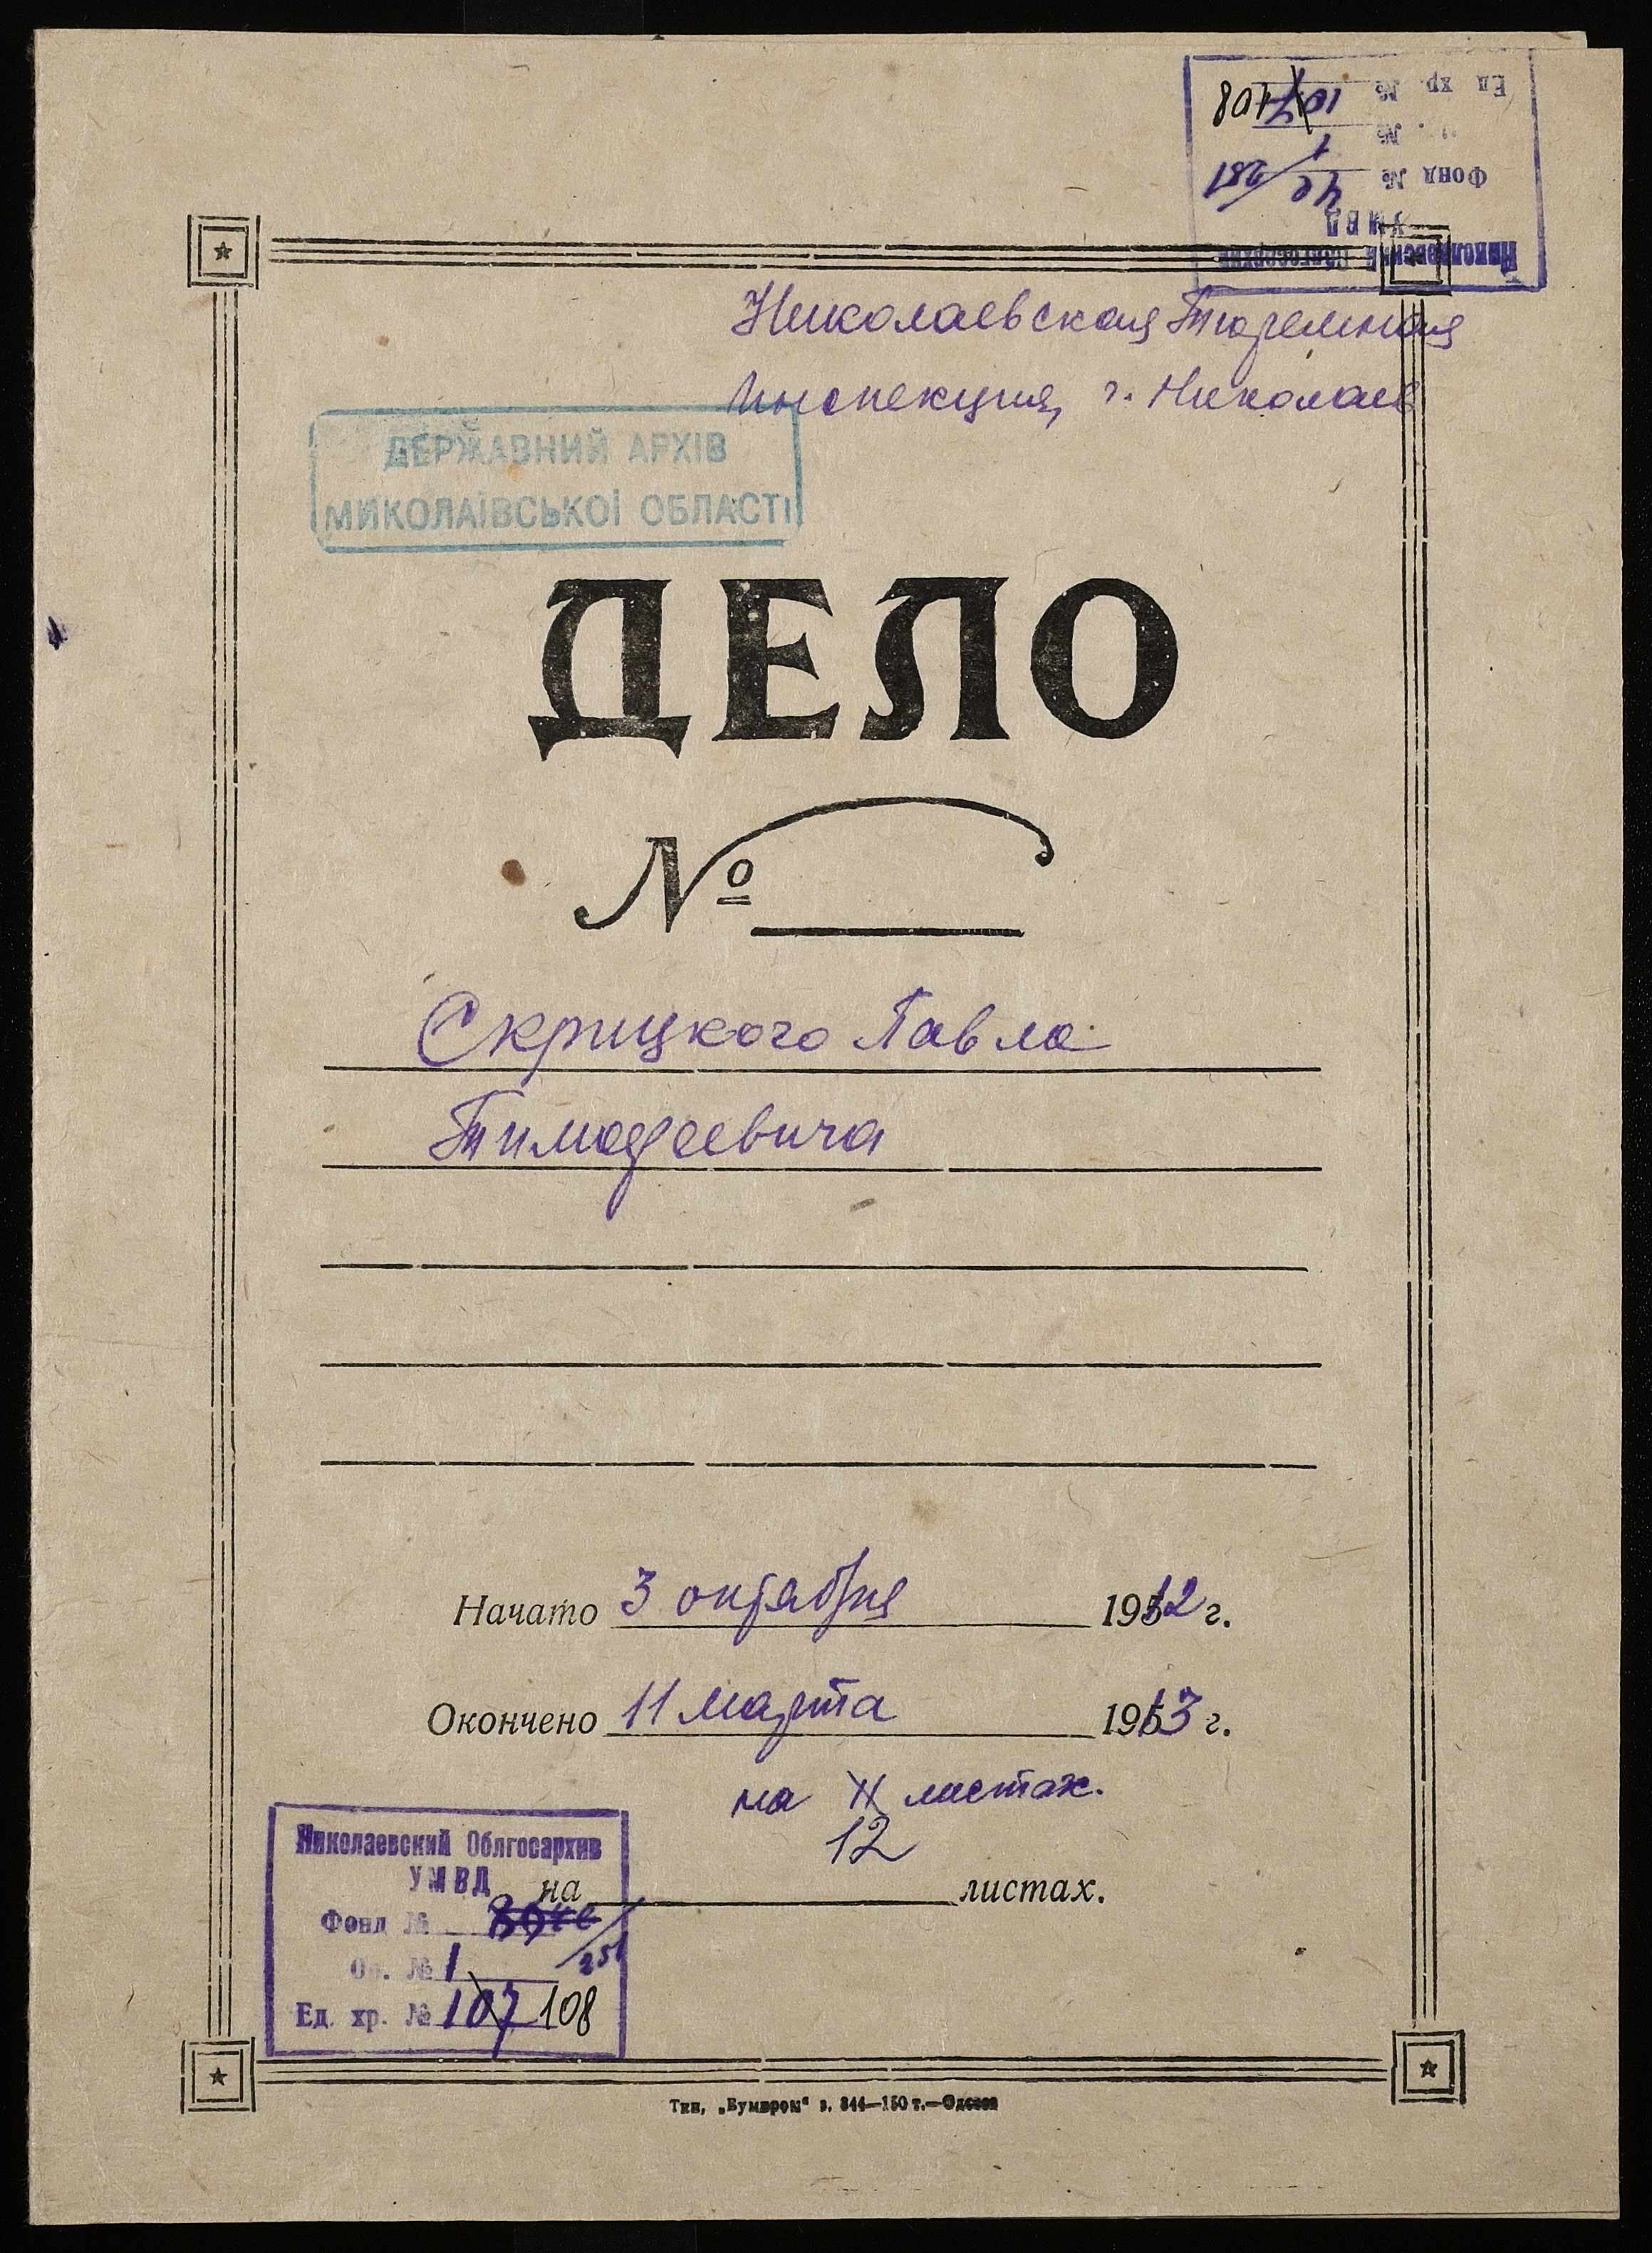 Ед хр. № 107 108
№ 1
Фонд № 42/281
УМВД
Николаевский Облгосархив
Николаевская Тюремная
Инспекция, г. Николаев
ДЕРЖАВНИЙ АРХІВ
МИКОЛАЇВСЬКОЇ ОБЛАСТІ
ДЕЛО
№
Скрицкого Павла
Тимофеевича
Начато 3 октября 1912 г.
Окончено 11 марта 1913 г.
на 11 листах.
12
на листах.
Николаевский Облгосархив
УМВД
Фонд №
Оп. № 1
Ед. хр. № 107 108
Тип, „Бумпром“ з. 844—150 т.—Одесса